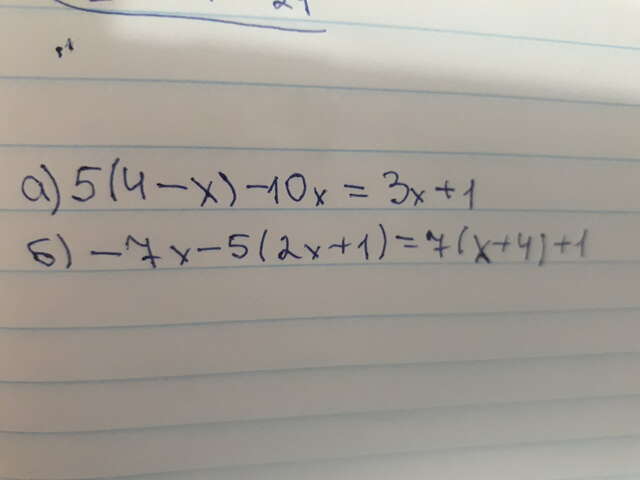 а) 5(4 - x) - 10x = 3x + 1
б) - 7x - 5(2x + 1) = 7(x + 4) + 1